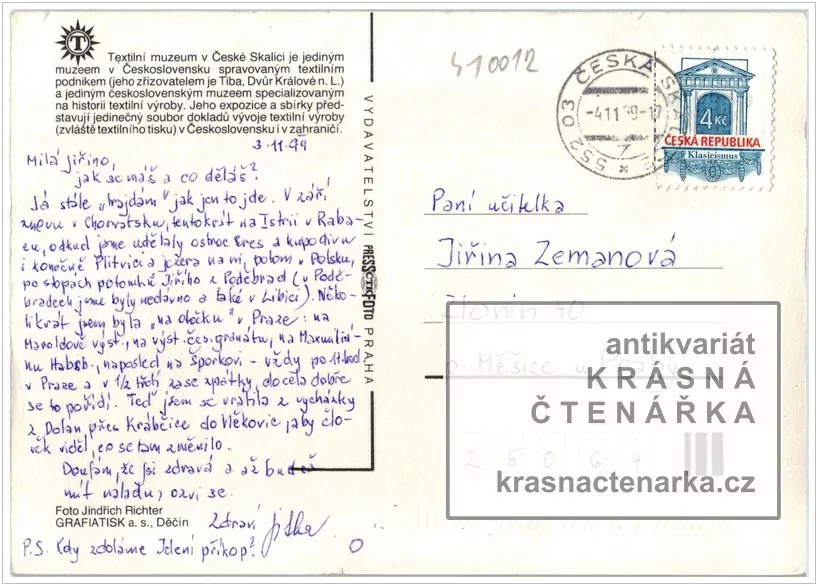 Textilní muzeum v České Skalici je jediným
muzeem v Československu spravovaným textilním
podnikem (jeho zřizovatelem je Tiba, Dvůr Králové n. L.)
a jediným československým muzeem specializovaným
na historii textilní výroby. Jeho expozice a sbírky před-
stavují jedinečný soubor dokladů vývoje textilní výroby
(zvláště textilního tisku) v Československu i v zahraničí.
3.11.99
Milá Jiřino,
jak se máš a co děláš?
Já stále „hajdám" jak jen to jde. V září
znovu v Chorvatsku, tentokrát na Istrii v Raba-
cu, odkud jsme udělaly ostrov Cres a kupodivu
i konečně Plitvici a jezera na ní, potom v Polsku,
po stopách potomků Jiřího z Poděbrad (v Podě-
bradech jsme byly nedávno a také v Libici). Něko-
likrát jsem byla „na otočku" v Praze: na
Maroldově výst., na výst. čes. granátu, na Maxmiliá-
nu Habsb., naposled na Šporkovi - vždy po 11. hod.
v Praze a v 1/2 třetí zase zpátky, docela dobře
se to pořídí. Teď jsem se vrátila z vycházky
z Dolan přes Krabčice do Vlčkovic, aby člo-
věk viděl, co se tam změnilo.
Doufám, že jsi zdravá a až budeš
mít náladu, ozvi se.
Zdraví Jitka
P.S. Kdy zdoláme Jelení příkop?
Foto Jindřich Richter
GRAFIATISK a. s., Děčín
VYDAVATELSTVÍ PRESSFOTO PRAHA
ČTK
410012
ČESKÁ SKALICE
-4.11.99-17
552 03
4 Kč
ČESKÁ REPUBLIKA
Klasicismus
Paní učitelka
Jiřina Zemanová
40
p. Měšice u Prahy
2 5 0 6 4
antikvariát
KRÁSNÁ
ČTENÁŘKA
krasnactenarka.cz